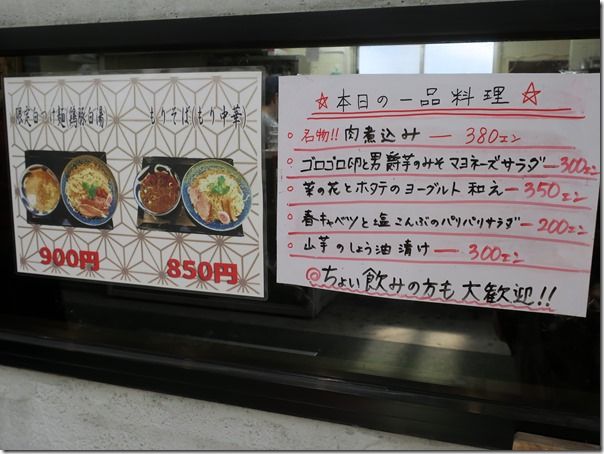 限定白つけ麺(鶏豚白湯)
もりそば(もり中華)
900円
850円
☆本日の一品料理☆
名物!!肉煮込み — 380エン
ゴロゴロ卵と男爵芋のみそマヨネーズサラダ — 300エン
菜の花とホタテのヨーグルト和え — 350エン
春キャベツと塩こんぶのパリパリサラダ — 200エン
山芋のしょう油漬け — 300エン
◎ちょい飲みの方も大歓迎!!